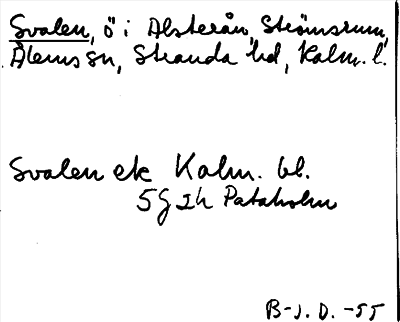 Svalen, ö i Alsterån, Strömsrum,
Ålems sn, Stranda hd, Kalm. l.
Svalen ek Kalm. bl.
5G 2h Pataholm
B-J. D. -55